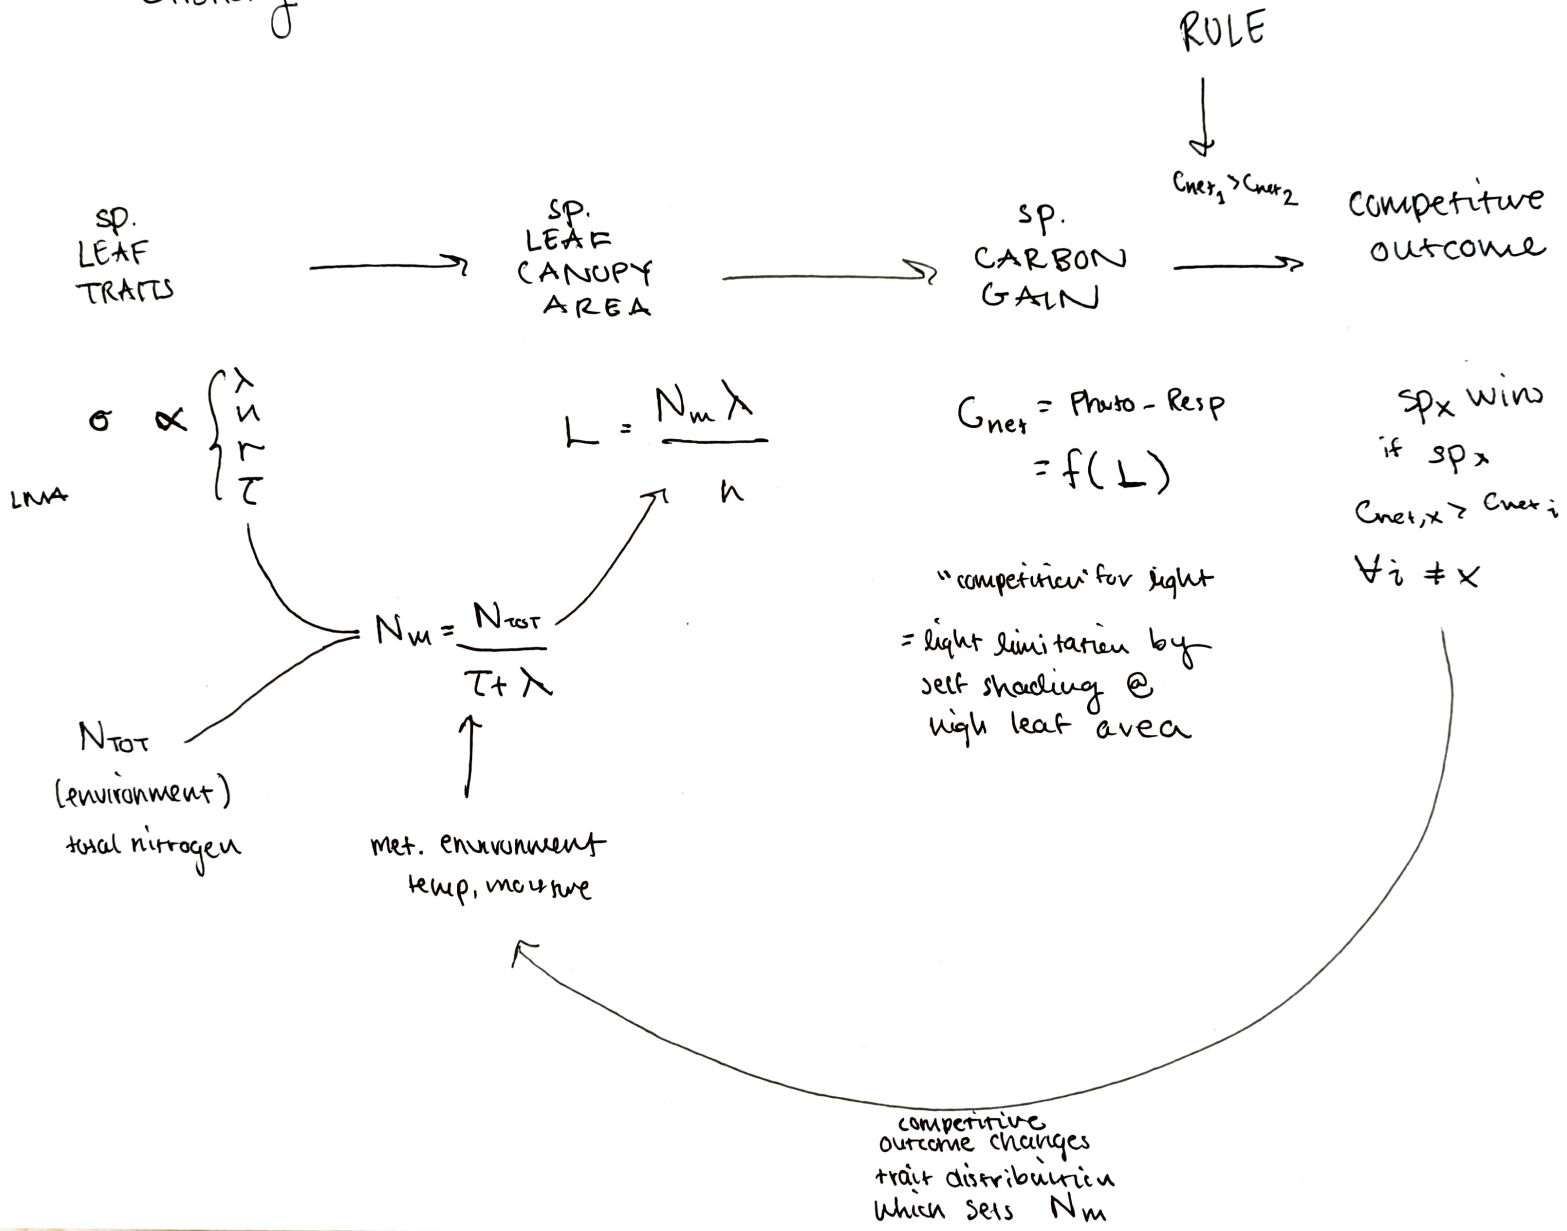 RULE
Cnet1 > Cnet2
sp.
LEAF
TRAITS
sp.
LEAF
CANOPY
AREA
sp.
CARBON
GAIN
competitive
outcome
σ ∝ { λ
n
r
τ
LMA
L = Nm λ
n
Cnet = Photo - Resp
= f(L)
spx wins
if spx
Cnet,x > Cnet i
∀i ≠ x
"competition" for light
= light limitation by
self shading @
high leaf area
Nm = NTOT
τ + λ
NTOT
(environment)
total nitrogen
met. environment
temp, moisture
competitive
outcome changes
trait distribution
which sets Nm